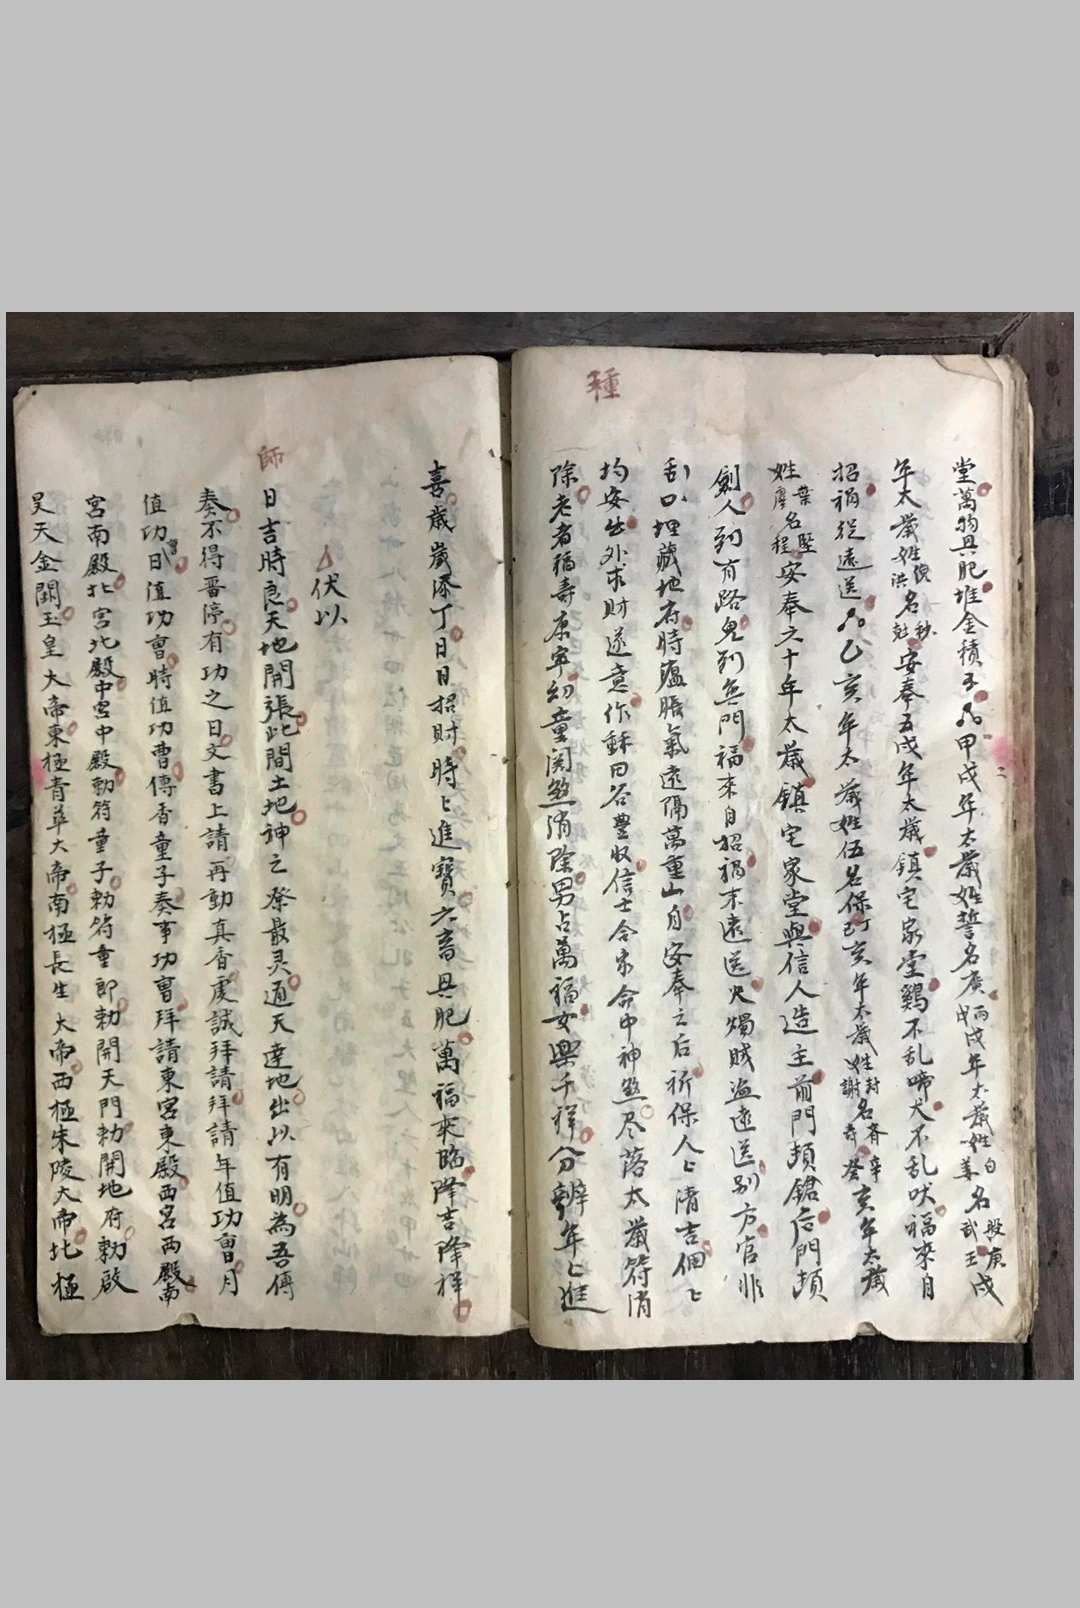 種
堂萬物具肥堆金積玉甲戌年太歲姓誓名廣丙戌年太歲姓白姜名般武壬庚戌
年太歲姓倪洪名秘尅安奉五戌年太歲鎮宅家堂鷄不乱啼犬不乱吠福來自
招禍從遠送乙亥年太歲姓伍名保丁亥年太歲姓封謝名齊壽辛癸亥年太歲
姓葉廖名堅程安奉之十年太歲鎮宅家堂與信人造主前門頭鎗后門頭
劍人到有路鬼到無門福來自招禍來遠送火燭賊盗遠送别方官非
舌口埋藏地府時瘟脹氣遠隔萬重山自安奉之后祈保人〻清吉個〻
均安出外求財遂意作穌田谷豊收信士合家命中神煞尽落太歲符消
除老者福壽康寧幼童関煞消除男占萬福女興千祥分辨年〻進
喜歲歲添丁日日招財時〻進寶六畜具肥萬福來臨降吉降祥
伏以
師
日吉時良天地開張此間土地神之祭最灵通天達地出以有明為吾傳
奏不得晋停有功之日文書上請再動真香虔誠拜請拜請年值功曹月
值功曹日值功曹時值功曹傳香童子奏事功曹拜請東宮東殿西宮西殿南
宮南殿北宮北殿中宮中殿勅符童子勅符童郎勅開天門勅開地府勅啟
昊天金闕玉皇大帝東極青華大帝南極長生大帝西極朱陵大帝北極